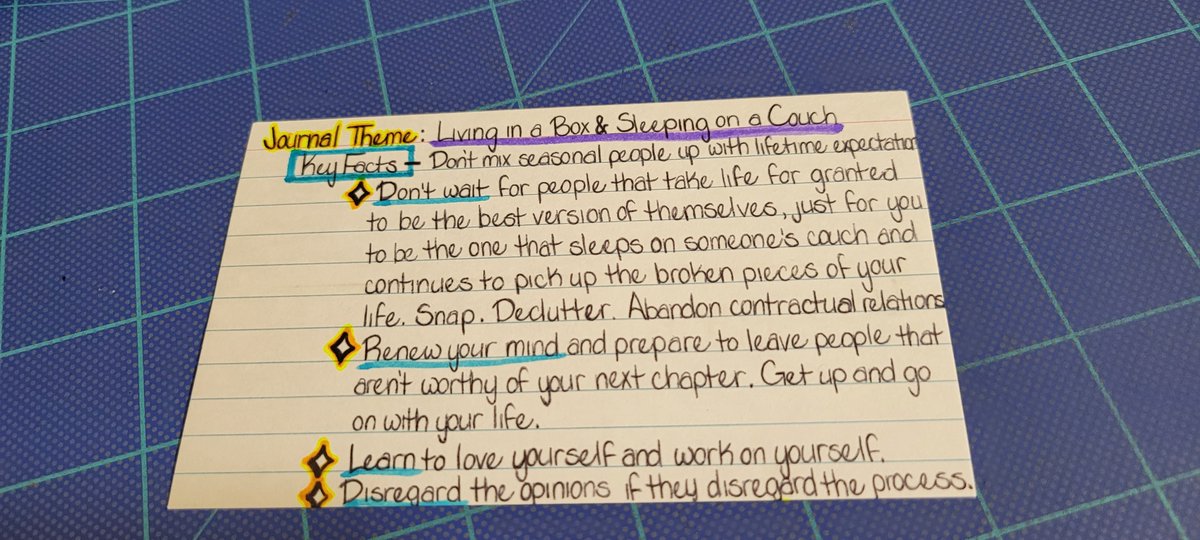 Journal Theme: Living in a Box & Sleeping on a Couch
Key Facts - Don't mix seasonal people up with lifetime expectation
Don't wait for people that take life for granted
to be the best version of themselves, just for you
to be the one that sleeps on someone's couch and
continues to pick up the broken pieces of your
life. Snap. Declutter. Abandon contractual relations
Renew your mind and prepare to leave people that
aren't worthy of your next chapter. Get up and go
on with your life.
Learn to love yourself and work on yourself.
Disregard the opinions if they disregard the process.